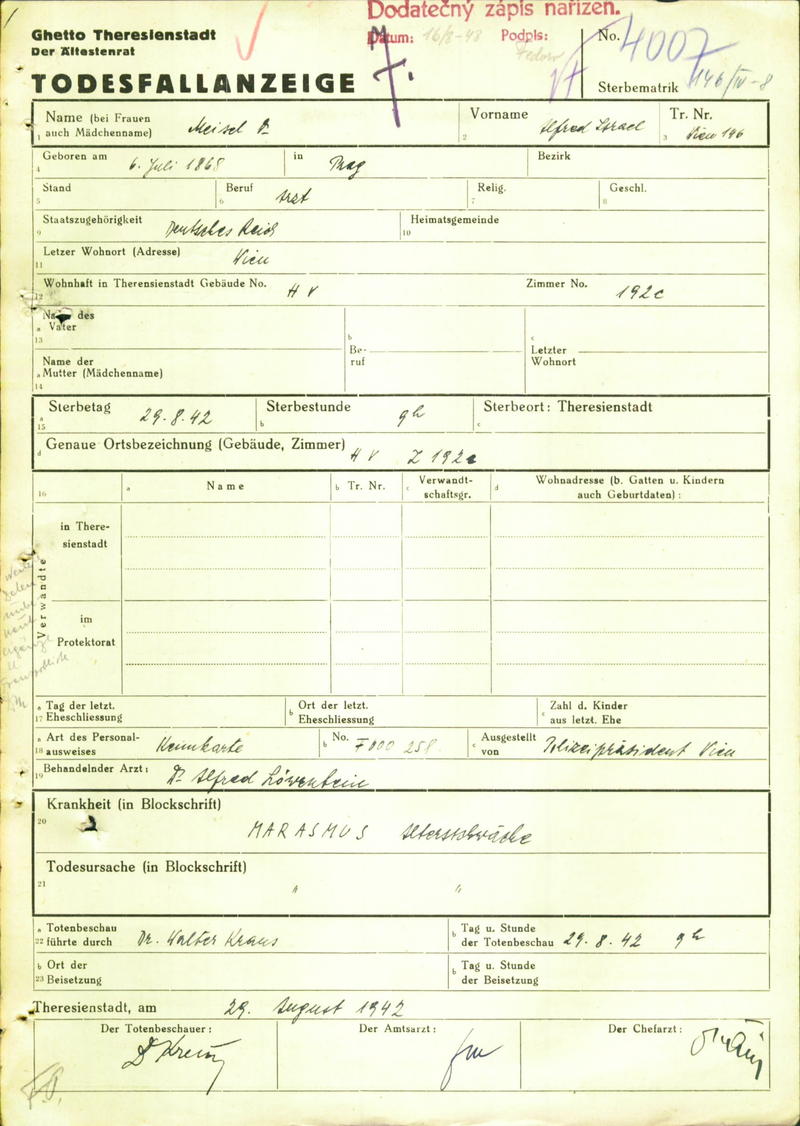 Dodatečný zápis nařízen.
Datum: 16/8-48 Podpis:
Ghetto Theresienstadt
Der Ältestenrat
TODESFALLANZEIGE
No. 4007
Sterbematrik 146/IV-8
Name (bei Frauen
1 auch Mädchenname) Meisel Dr
Vorname
2 Alfred Israel
Tr. Nr.
3 Wien 196
Geboren am
4 6. Juli 1868
in Prag
Bezirk
Stand
5
Beruf
6 Arzt
Relig.
7
Geschl.
8
Staatszugehörigkeit
9 Deutsches Reich
Heimatsgemeinde
10
Letzer Wohnort (Adresse)
11 Wien
Wohnhaft in Theresienstadt Gebäude No. H V
12
Zimmer No. 192c
Name des
a Vater
13
b
Be-
ruf
c
Letzter
Wohnort
Name der
a Mutter (Mädchenname)
14
Sterbetag 29.8.42
a
15
Sterbestunde 9h
b
Sterbeort: Theresienstadt
c
Genaue Ortsbezeichnung (Gebäude, Zimmer) H V Z 192c
d
16
a Name
b Tr. Nr.
c Verwandt-
schaftsgr.
d Wohnadresse (b. Gatten u. Kindern
auch Geburtdaten) :
Verwandte
in There-
sienstadt
im
Protektorat
a Tag der letzt.
17 Eheschliessung
b Ort der letzt.
Eheschliessung
c Zahl d. Kinder
aus letzt. Ehe
a Art des Personal-
18 ausweises Kennkarte
b No. F000 258
c Ausgestellt
von Polizeipräsident Wien
Behandelnder Arzt: Dr Alfred Löwenstein
19
Krankheit (in Blockschrift)
20
MARASMUS Altersschwäche
Todesursache (in Blockschrift)
21
" "
a Totenbeschau
22 führte durch Dr. Walter Kraus
b Tag u. Stunde
der Totenbeschau 29.8.42 9h
b Ort der
23 Beisetzung
b Tag u. Stunde
der Beisetzung
Theresienstadt, am 29. August 1942
Der Totenbeschauer:
Der Amtsarzt:
Der Chefarzt: